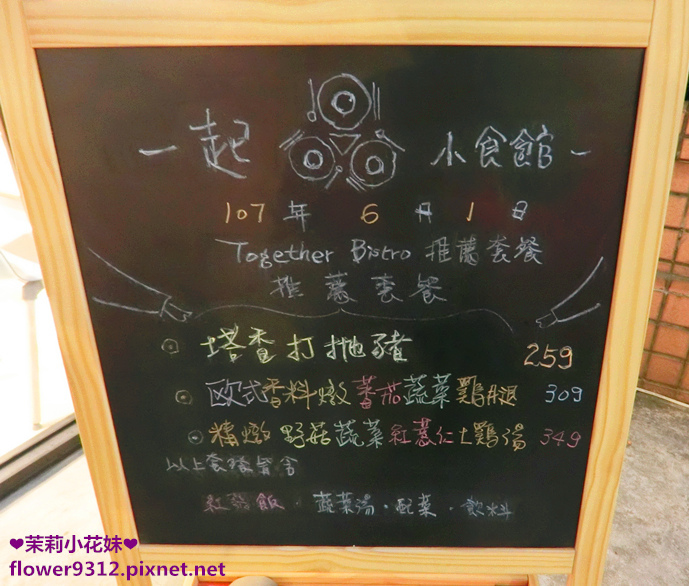 一起 小食館
107年 6月1日
Together Bistro 推薦套餐
推薦套餐
塔香打拋豬 259
欧式香料燉蕃茄蔬菜雞腿 309
精燉野菇蔬菜紅薏仁土雞湯 349
以上套餐皆含
紅藜飯·蔬菜湯·配菜·飲料
❤茉莉小花妹❤
flower9312.pixnet.net